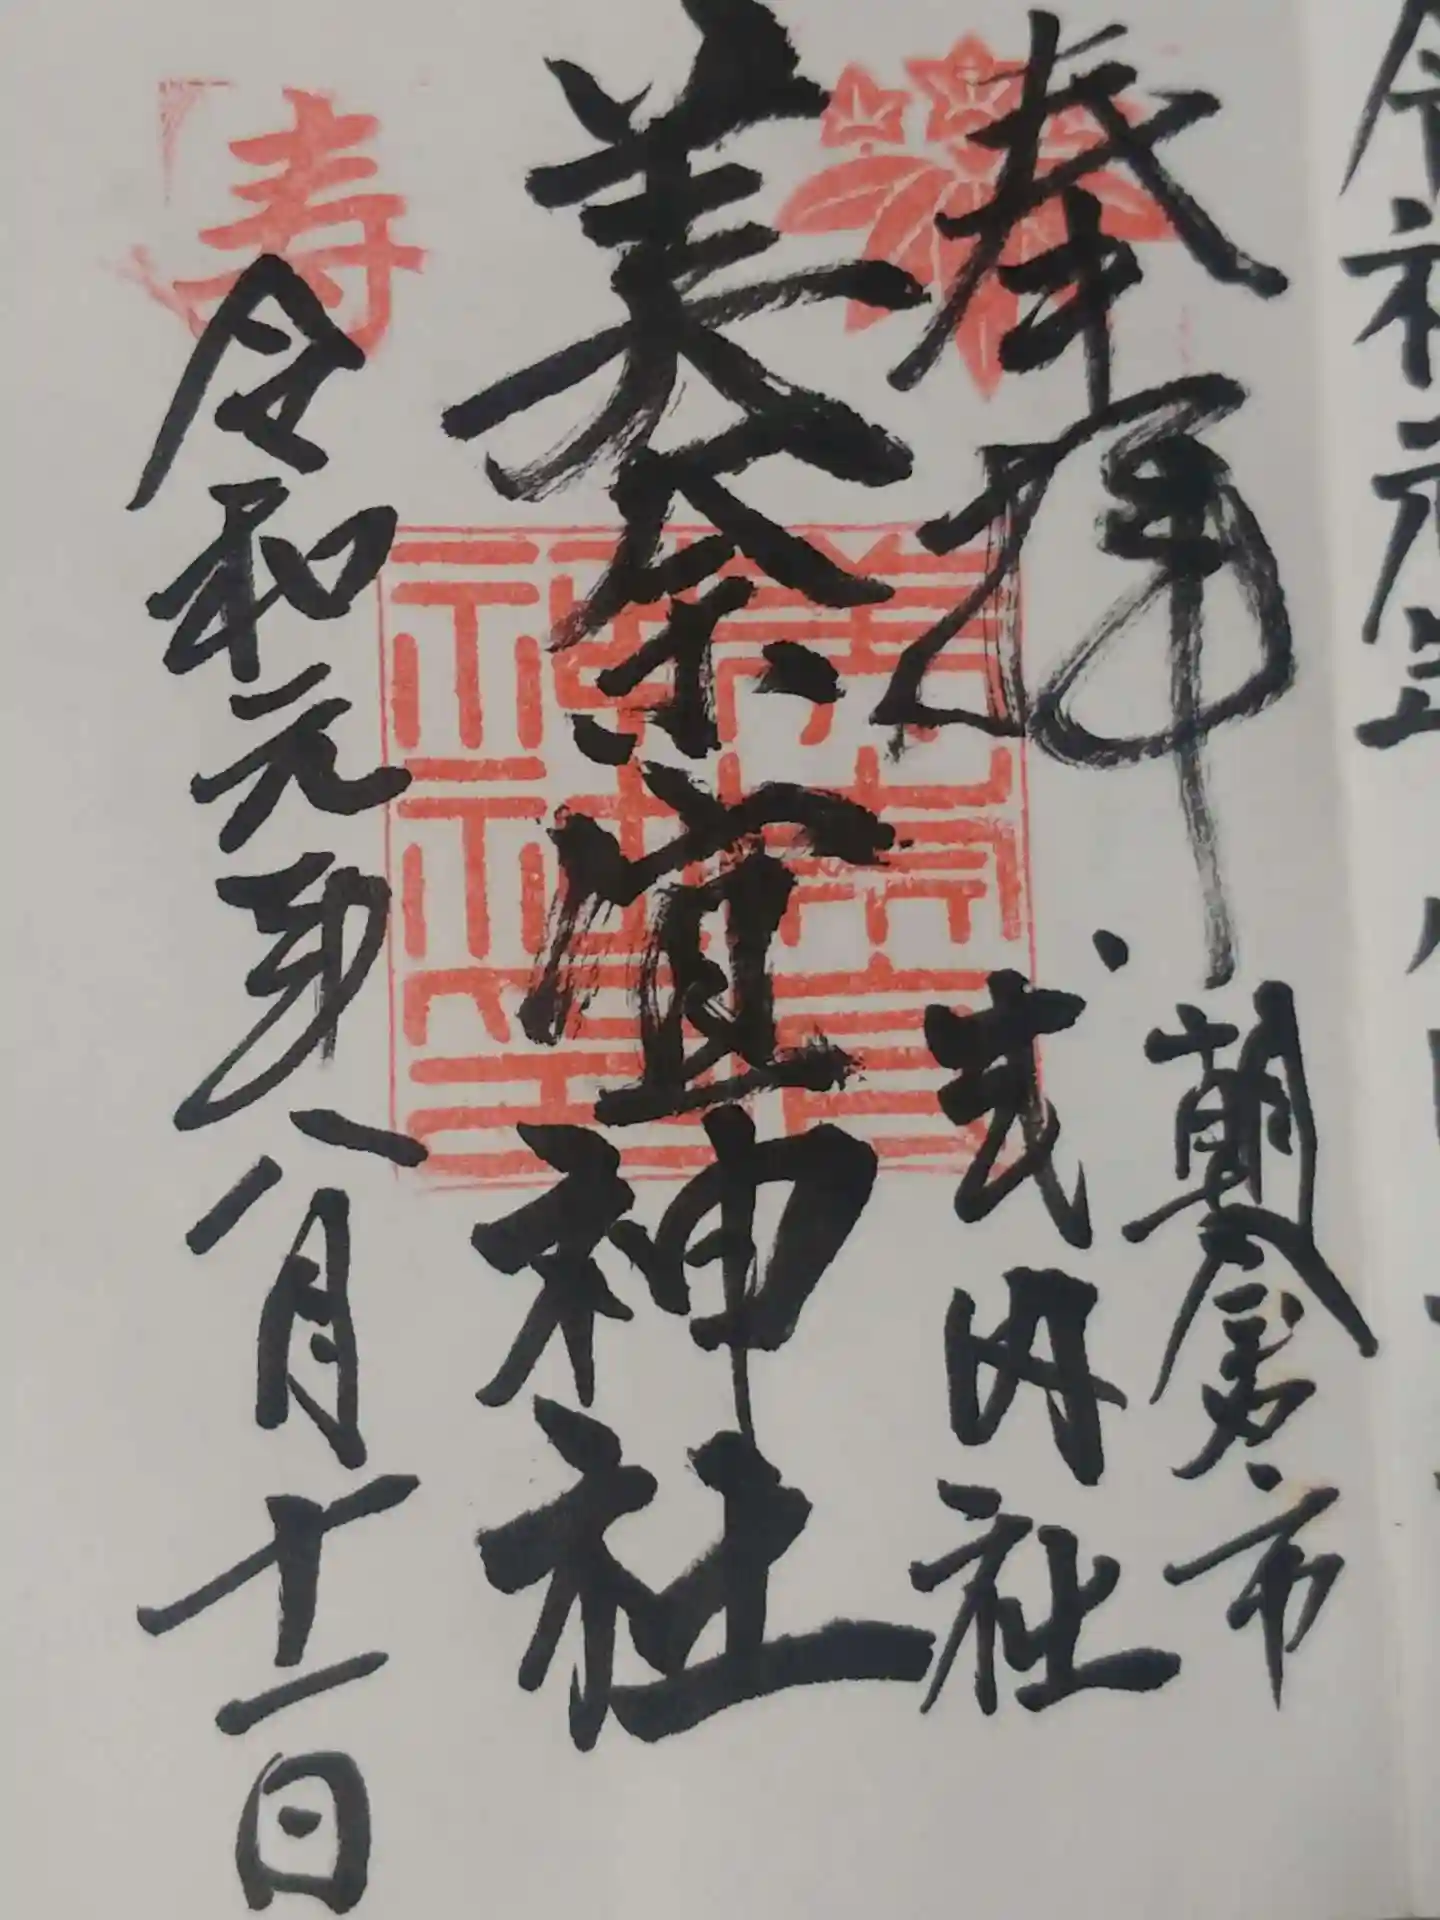 令和元年
奉拝
朝倉市
式内社
美奈宜神社
美奈宜
神社印
寿
令和元年八月十一日